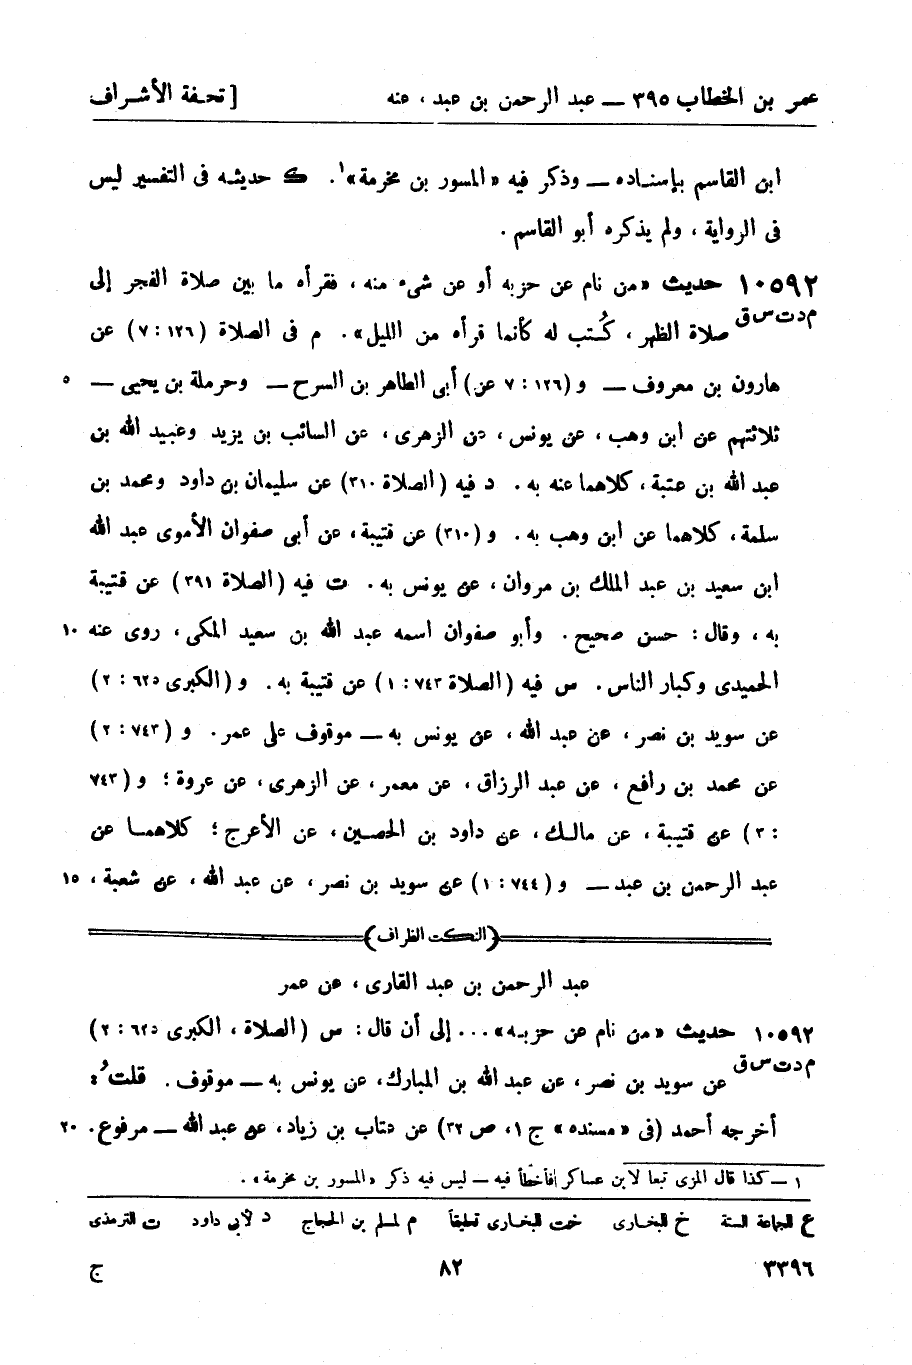 عمر بن الخطاب ٣٩٥ — عبد الرحمن بن عبد ، عنه [ تحفة الأشراف
ابن القاسم بإسناده — وذكر فيه «المسور بن مخرمة»١. ك حديثه فى التفسير ليس
فى الرواية ، ولم يذكره أبو القاسم .
١٠٥٩٢ حديث «من نام عن حزبه أو عن شىء منه ، فقرأه ما بين صلاة الفجر إلى
م د ت س ق صلاة الظهر ، كُتب له كأنما قرأه من الليل» . م فى الصلاة (١٢٦ : ٧) عن
هارون بن معروف — و (١٢٦ : ٧ عن) أبى الطاهر بن السرح — وحرملة بن يحيى — ٥
ثلاثتهم عن ابن وهب ، عن يونس ، عن الزهرى ، عن السائب بن يزيد وعبيد الله بن
عبد الله بن عتبة ، كلاهما عنه به . د فيه (الصلاة ٣١٠) عن سليمان بن داود ومحمد بن
سلمة ، كلاهما عن ابن وهب به . و (٣١٠) عن قتيبة ، عن أبى صفوان الأموى عبد الله
ابن سعيد بن عبد الملك بن مروان ، عن يونس به . ت فيه (الصلاة ٣٩١) عن قتيبة
به ، وقال : حسن صحيح . وأبو صفوان اسمه عبد الله بن سعيد المكى ، روى عنه ١٠
الحميدى وكبار الناس . س فيه (الصلاة ٧٤٣ : ١) عن قتيبة به . و (الكبرى ٦٢٥ : ٢)
عن سويد بن نصر ، عن عبد الله ، عن يونس به — موقوف على عمر . و (٧٤٣ : ٢)
عن محمد بن رافع ، عن عبد الرزاق ، عن معمر ، عن الزهرى ، عن عروة ؛ و (٧٤٣
: ٣) عن قتيبة ، عن مالك ، عن داود بن الحصين ، عن الأعرج ؛ كلاهما عن
عبد الرحمن بن عبد — و (٧٤٤ : ١) عن سويد بن نصر ، عن عبد الله ، عن شعبة ، ١٥
(النكت الظراف)
عبد الرحمن بن عبد القارى ، عن عمر
١٠٥٩٢ حديث «من نام عن حزبه» . . . إلى أن قال : س (الصلاة ، الكبرى ٦٢٥ : ٢)
م د ت س ق عن سويد بن نصر ، عن عبد الله بن المبارك ، عن يونس به — موقوف . قلتُ :
أخرجه أحمد (فى «مسنده» ج ١ ، ص ٣٢) عن عتاب بن زياد ، عن عبد الله — مرفوع . ٢٠
١ — كذا قال المزى تبعا لابن عساكر فأخطأ فيه — ليس فيه ذكر «المسور بن مخرمة» .
ع للجماعة الستة خ للبخارى خت للبخارى تعليقاً م لمسلم بن الحجاج د لأبى داود ت للترمذى
٣٣٩٦ ٨٢ ج